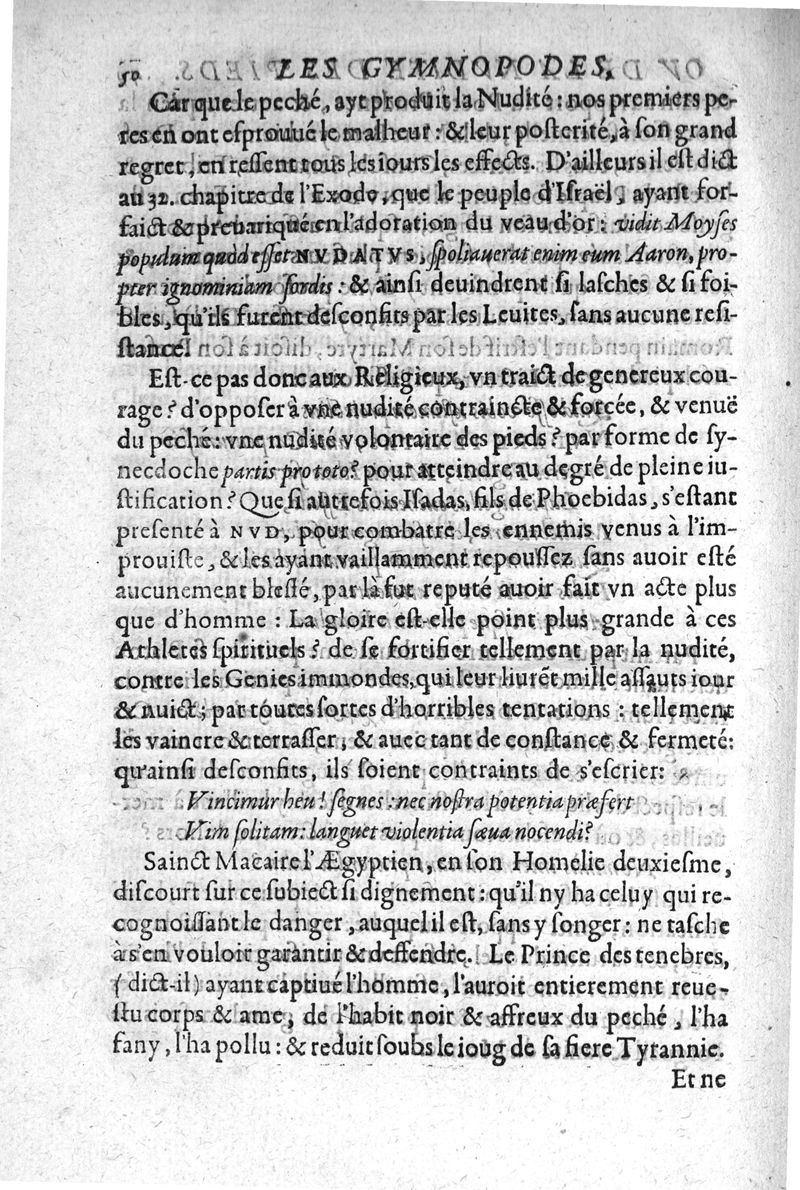 50 LES GYMNOPODES,
Car que le peché, ayt produit la Nudité : nos premiers pe-
res en ont esprouué le malheur : & leur posterité, à son grand
regret, en ressent tous les iours les effects. D'ailleurs il est dict
au 32. chapitre de l'Exode, que le peuple d'Israël, ayant for-
faict & preuariqué en l'adoration du veau d'or : vidit Moyses
populum quòd esset NVDATVS, spoliauerat enim eum Aaron, pro-
pter ignominiam sordis : & ainsi deuindrent si lasches & si foi-
bles, qu'ils furent desconfits par les Leuites, sans aucune resi-
stance.
Est-ce pas donc aux Religieux, vn traict de genereux cou-
rage ? d'opposer à vne nudité contraincte & forcée, & venuë
du peché : vne nudité volontaire des pieds ? par forme de sy-
necdoche partis pro toto ? pour atteindre au degré de pleine iu-
stification ? Que si autrefois Isadas, fils de Phoebidas, s'estant
presenté à NVD, pour combatre les ennemis venus à l'im-
prouiste, & les ayant vaillamment repoussez sans auoir esté
aucunement blessé, par là fut reputé auoir fait vn acte plus
que d'homme : La gloire est-elle point plus grande à ces
Athletes spirituels ? de se fortifier tellement par la nudité,
contre les Genies immondes, qui leur liurẽt mille assauts iour
& nuict ; par toutes sortes d'horribles tentations : tellement
les vaincre & terrasser, & auec tant de constance & fermeté:
qu'ainsi desconfits, ils soient contraints de s'escrier:
Vincimur heu ! segnes : nec nostra potentia præfert
Vim solitam : languet violentia sæua nocendi?
Sainct Macaire l'Ægyptien, en son Homélie deuxiesme,
discourt sur ce subiect si dignement : qu'il ny ha celuy qui re-
cognoissant le danger, auquel il est, sans y songer : ne tasche
à s'en vouloir garantir & deffendre. Le Prince des tenebres,
(dict-il) ayant captiué l'homme, l'auroit entierement reue-
stu corps & ame, de l'habit noir & affreux du peché, l'ha
fany, l'ha pollu : & reduit soubs le ioug de sa fiere Tyrannie.
Et ne